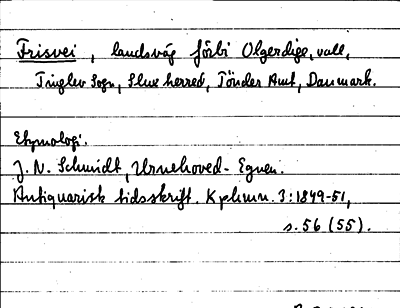 Frisvei, landsväg förbi Olgerdige, vall,
Tinglev Sogn, Slux herred, Tönder Amt, Danmark.
Etymologi.
J. N. Schmidt, Urnehoved-Egnen.
Antiquarisk tidsskrift. Kphmn. 3:1849-51,
s. 56 (55).